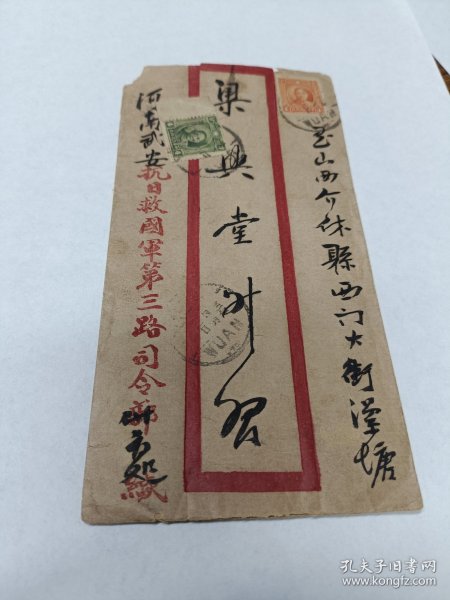 至山西介休縣西门大街澡塘
梁興堂
河南武安抗日救國軍第三路司令部緘
WUAN
WUAN
孔夫子旧书网
www.kongfz.com